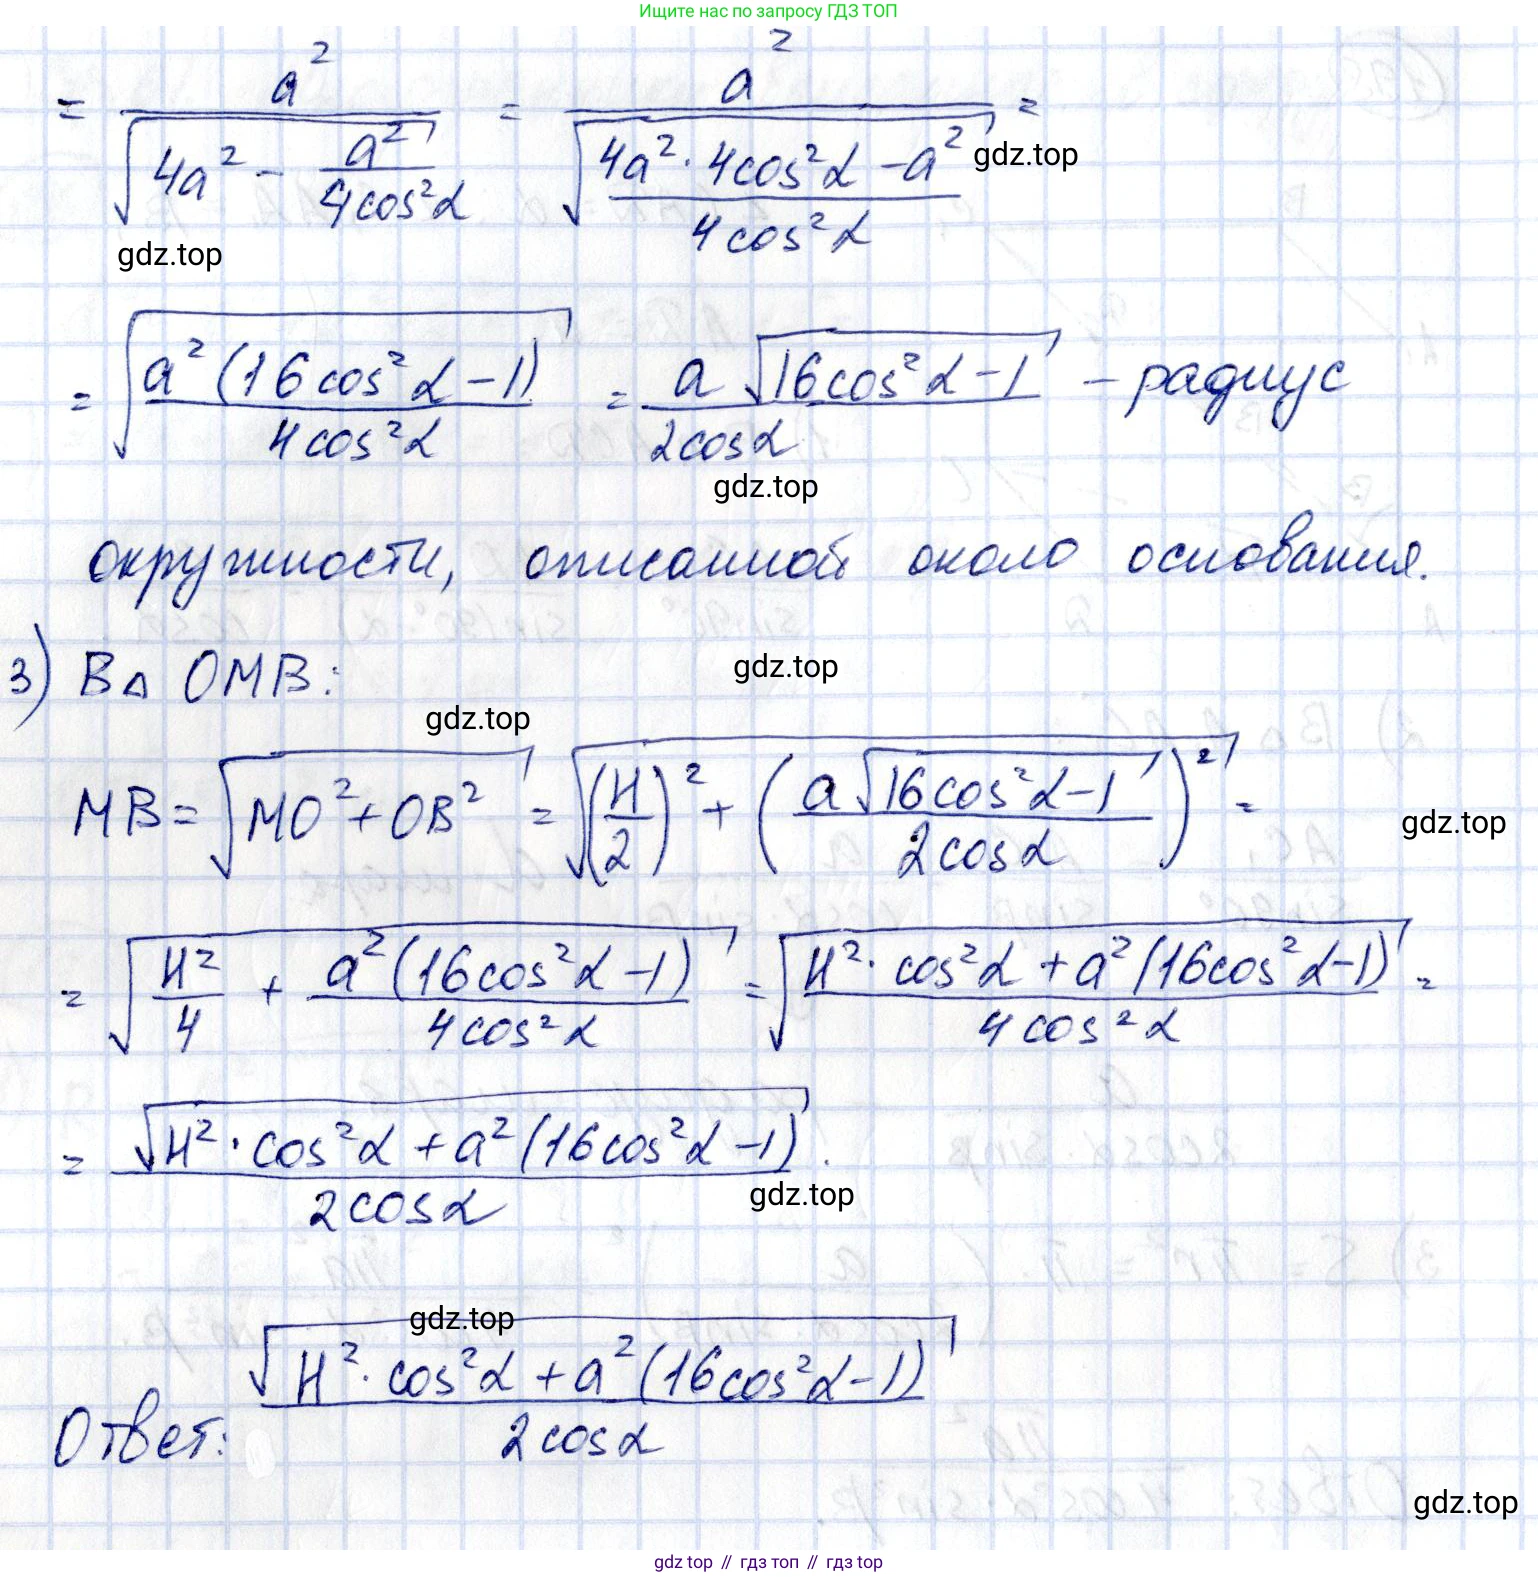 Ищите нас по запросу ГДЗ ТОП
= a² / √(4a² − a²/(4cos²α)) = a² / √((4a² · 4cos²α − a²)/(4cos²α)) =
gdz.top
gdz.top
= √(a²(16cos²α − 1)/(4cos²α)) = a√(16cos²α − 1)/(2cosα) − радиус
gdz.top
окружности, описанной около основания.
3) В △ OMB:
gdz.top
gdz.top
MB = √(MO² + OB²) = √((H/2)² + (a√(16cos²α − 1)/(2cosα))²) =
gdz.top
= √(H²/4 + a²(16cos²α − 1)/(4cos²α)) = √((H² · cos²α + a²(16cos²α − 1))/(4cos²α)) =
= √(H² · cos²α + a²(16cos²α − 1))/(2cosα).
gdz.top
gdz.top
Ответ: √(H² · cos²α + a²(16cos²α − 1))/(2cosα)
gdz.top
gdz top // гдз топ // gdz top